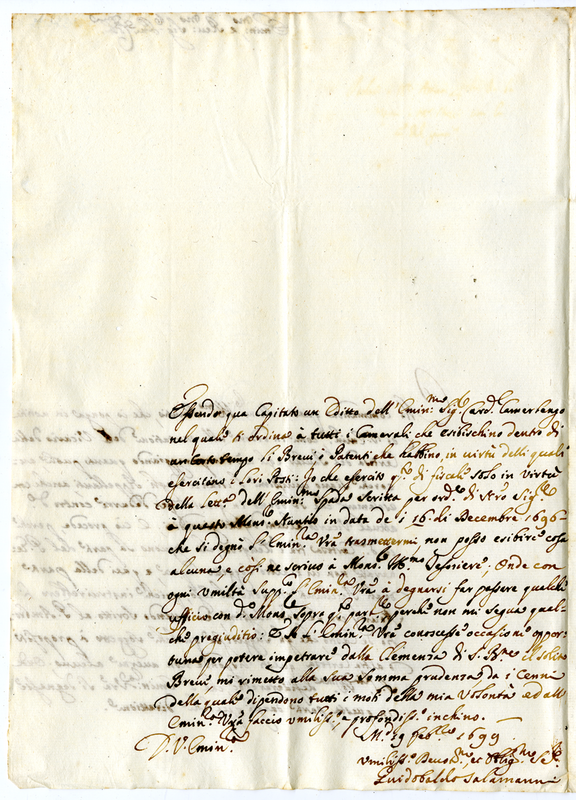 Essendo qua Capitato un Editto dell' Emin:mo Sig.r Card.le Camerlengo
nel quale si ordina à tutti i Camerali che esibischino dentro di
un certo tempo li Brevi, i Patenti che habbino, in virtù delli quali
esercitano i loro Posti: Io che esercito q.o di fiscale solo in virtù
della Lett.a dell' Emin:mo Spada scritta per ord.e di N'ro Sig.re
à questo Mons.r Nuntio in data de i 16. di Decembre 1696
che si degnò S. Emin.za V'ra trasmettermi, non posso esibire cosa
alcuna, e così ne scrivo à Mons.r Ill:mo Tesoriere; Onde con
ogni umiltà supp.co l'Emin.za V'ra à degnarsi far passare qualche
uffizio con d.o Mons.re sopra q.o part.re perche non mi segua qual-
che pregiuditio: E se l'Emin.za V'ra conoscesse occasione oppor-
tuna per potere impetrare dalla Clemenza di S. B.ne il solito
Breve mi rimetto alla sua somma prudenza da i Cenni
della quale dipendono tutti i moti della mia Volontà, ed all'
Emin.za V'ra faccio umiliss.o e profondiss.o inchino.
29 Feb.ro 1699
D. V. Emin.za
Umiliss.o Devot.mo et Oblig.mo Se.re
Guidobaldo Salamanni